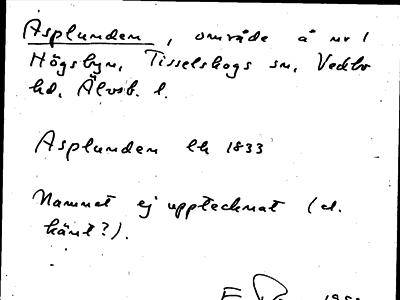 Asplunden, område å nr 1
Högsbyn, Tisselskogs sn, Vedbo
hd, Älvsb. l.
Asplunden lh 1833
Namnet ej upptecknat (el.
känt?).